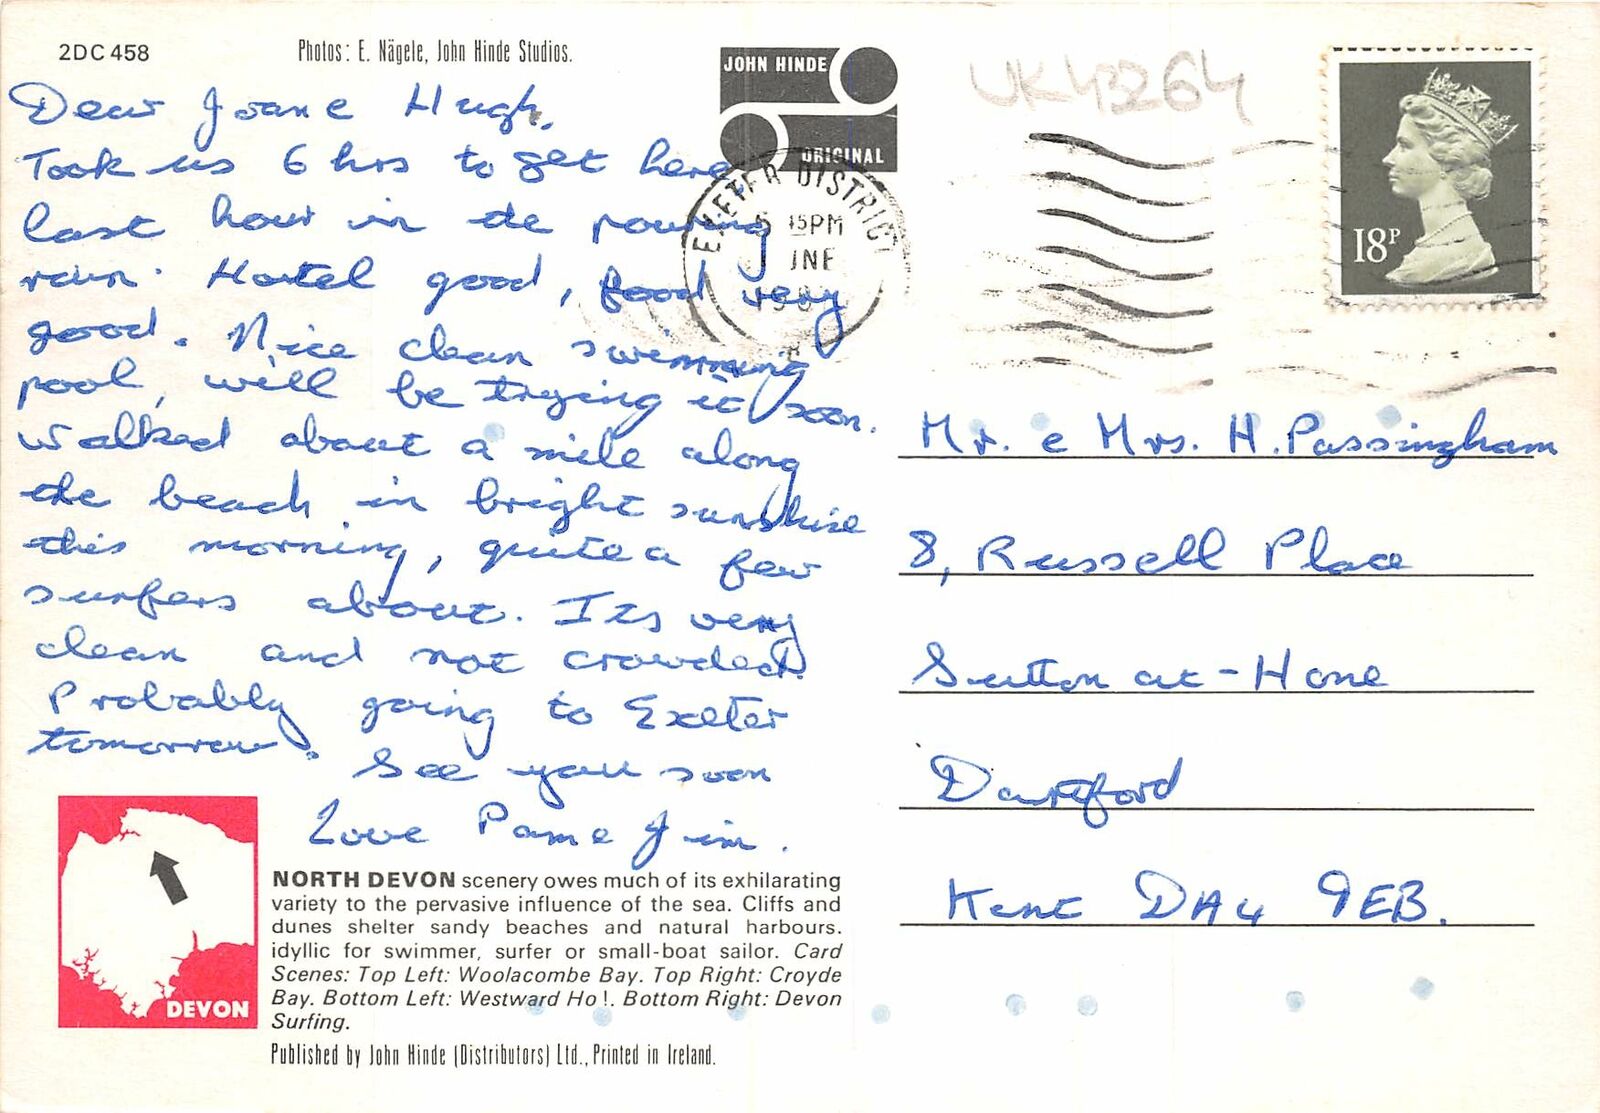 2DC 458
Photos: E. Nägele, John Hinde Studios.
JOHN HINDE
ORIGINAL
UK43264
EXETER DISTRICT
15PM
18P
Dear Joan e Hugh,
Took us 6 hrs to get here,
last hour in the pouring
rain. Hotel good, food very
good. Nice clean swimming
pool, will be trying it soon.
Walked about a mile along
the beach in bright sunshine
this morning, quite a few
surfers about. Its very
clean and not crowded.
Probably going to Exeter
tomorrow.
See you soon
Love Pam e Jim.
Mr. e Mrs. H. Passingham
8, Russell Place
Sutton at-Hone
Dartford
Kent DA4 9EB.
DEVON
NORTH DEVON scenery owes much of its exhilarating
variety to the pervasive influence of the sea. Cliffs and
dunes shelter sandy beaches and natural harbours.
idyllic for swimmer, surfer or small-boat sailor. Card
Scenes: Top Left: Woolacombe Bay. Top Right: Croyde
Bay. Bottom Left: Westward Ho!. Bottom Right: Devon
Surfing.
Published by John Hinde (Distributors) Ltd., Printed in Ireland.